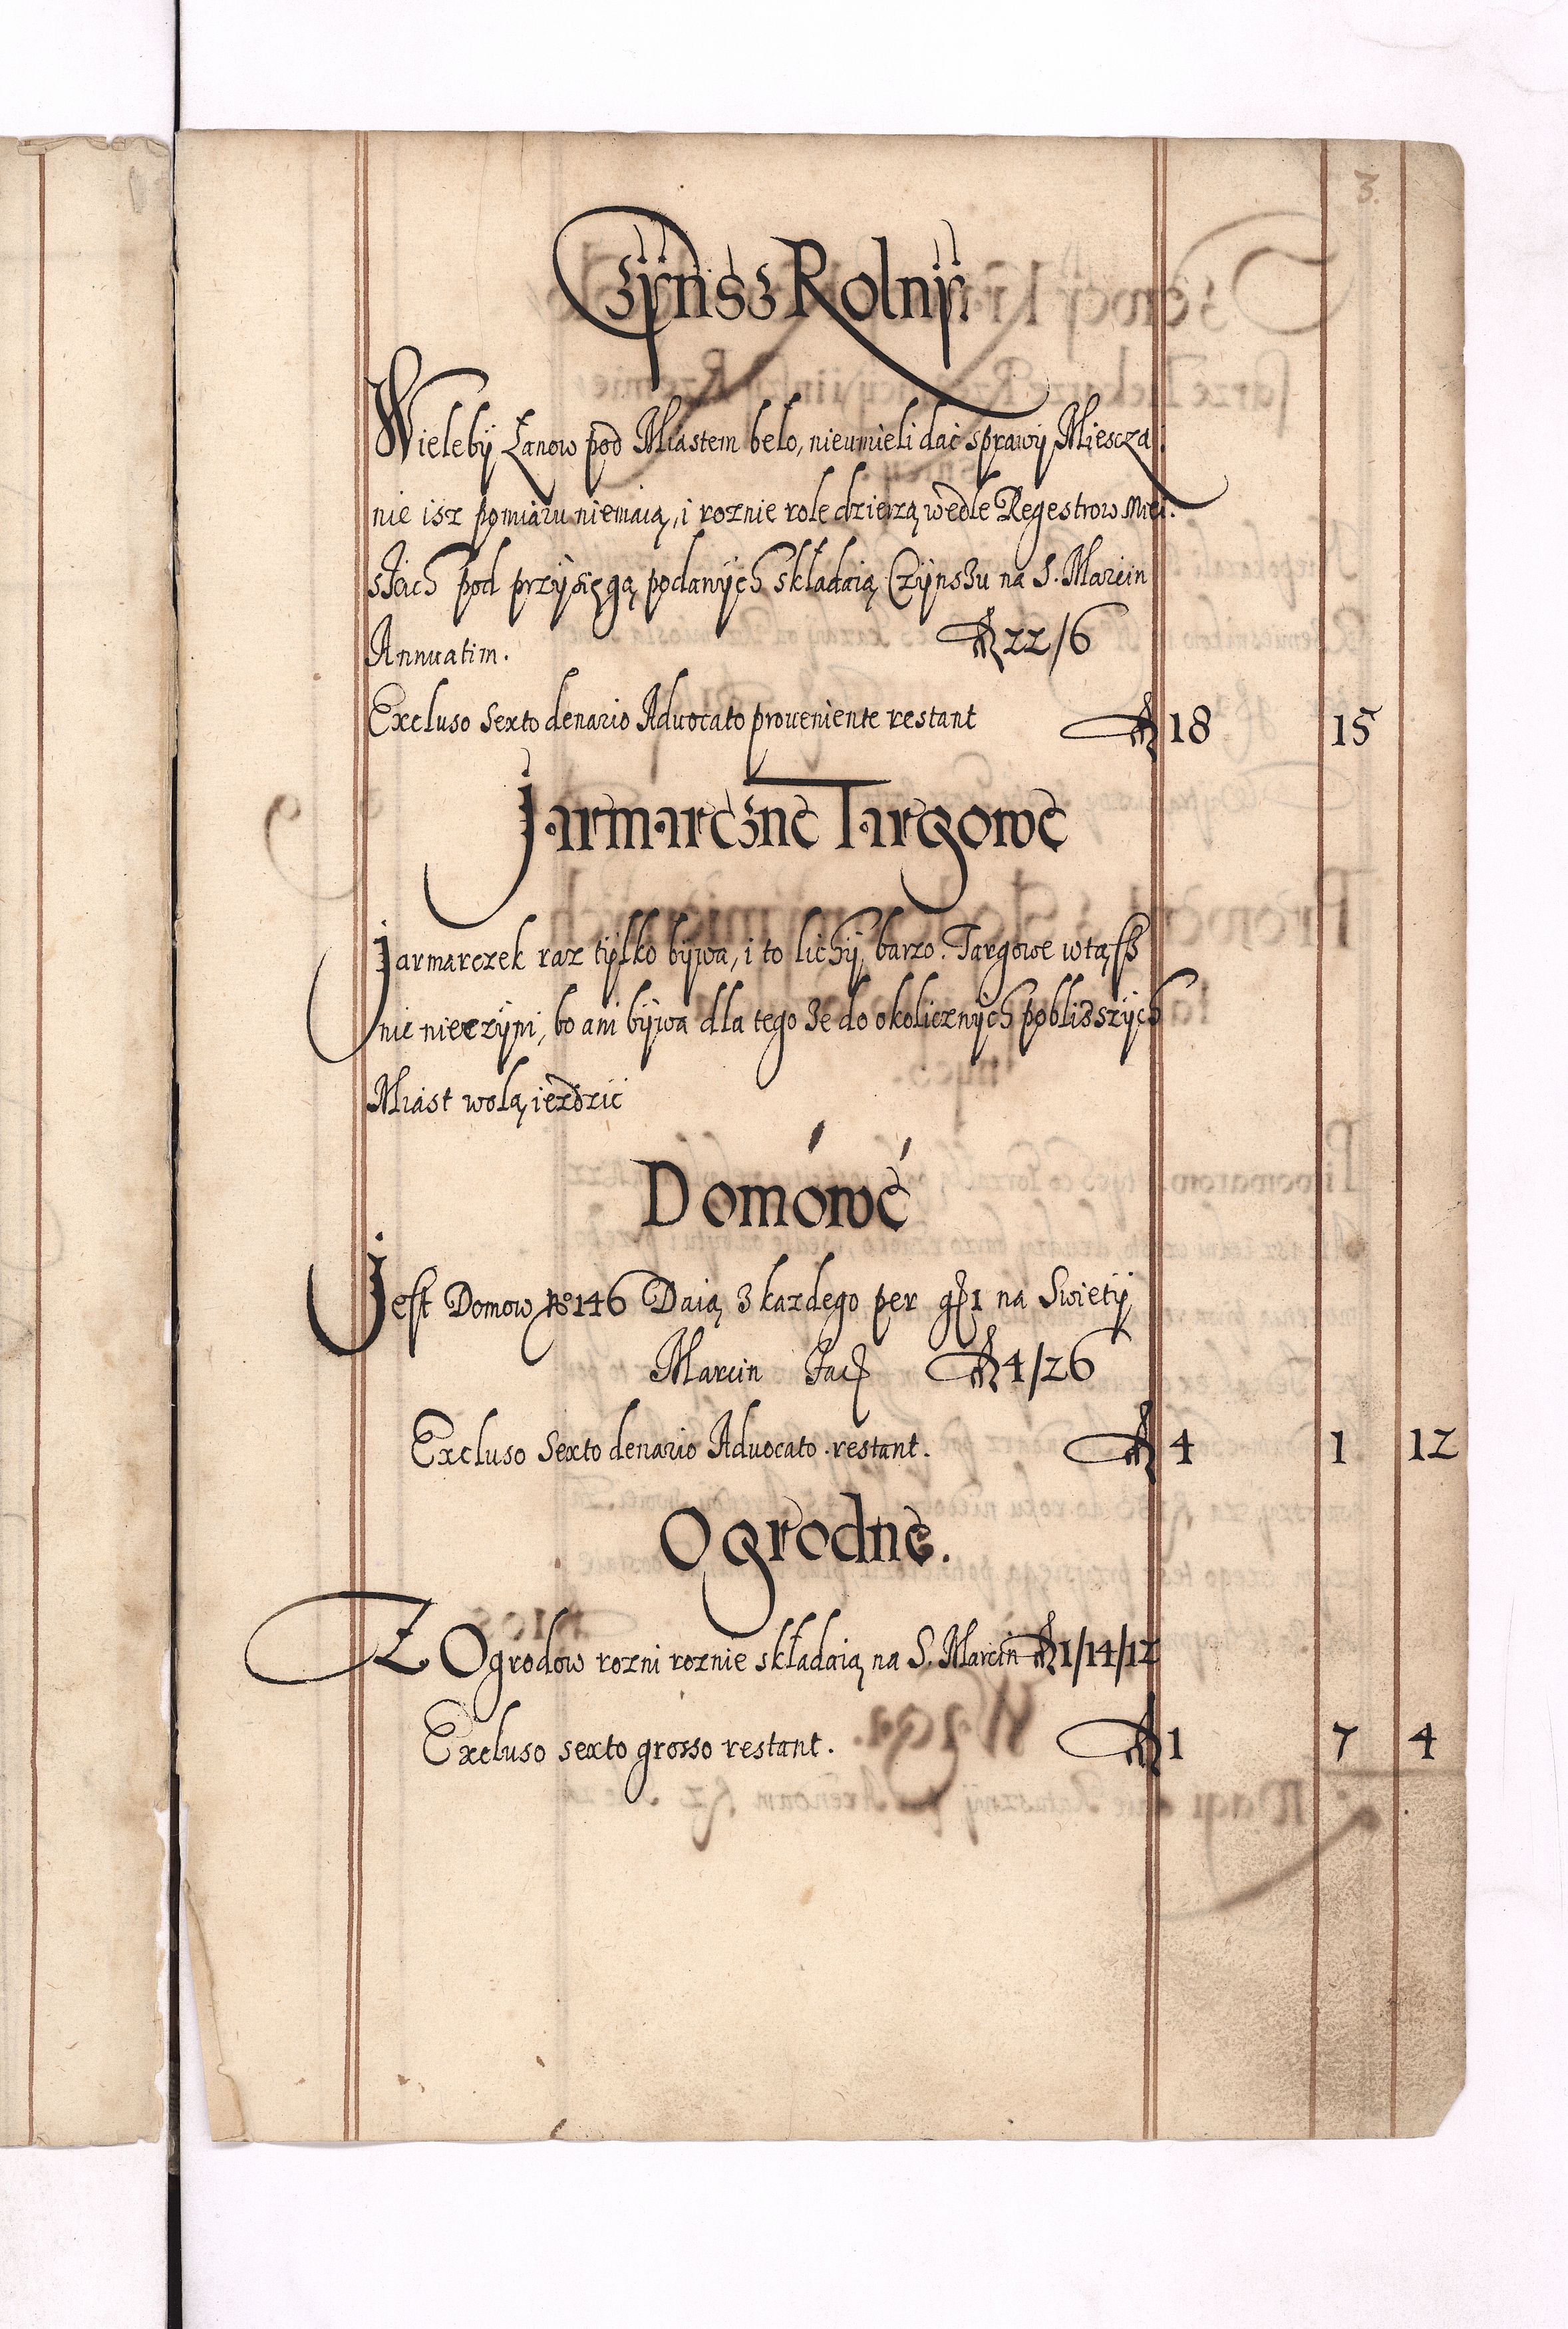 3.
Czÿnsz Rolnÿ.
Wielebÿ Łanow pod Miastem beło, nieumieli dac sprawÿ Miescza:
nie isz pomiaru niemaią, i roznie role dzierzą wedle Regestrow Miei:
skich pod przÿsięgą podanÿch składaią Czÿnszu na S. Marcin
Annuatim. 22/6
Excluso Sexto denario Advocato proveniente restant 18 15
Jarmarczne Targowe
Jarmarczek raz tÿlko bÿwa, i to lichÿ barzo. Targowe wtąsz
nic nieczÿni, bo ani bÿwa dla tego ze do okolicznÿch poblizszÿch
Miast wolą iezdzic
Domówé
Jest Domow No 146 Daią z kazdego per g 1 na Swietÿ
Marcin facit 4/26
Excluso Sexto denario Advocato restant. 4 1 12
Ogrodne.
Z Ogrodow rozni roznie składaią na S. Marcin 1/14/12
Excluso sexto grosso restant. 1 7 4